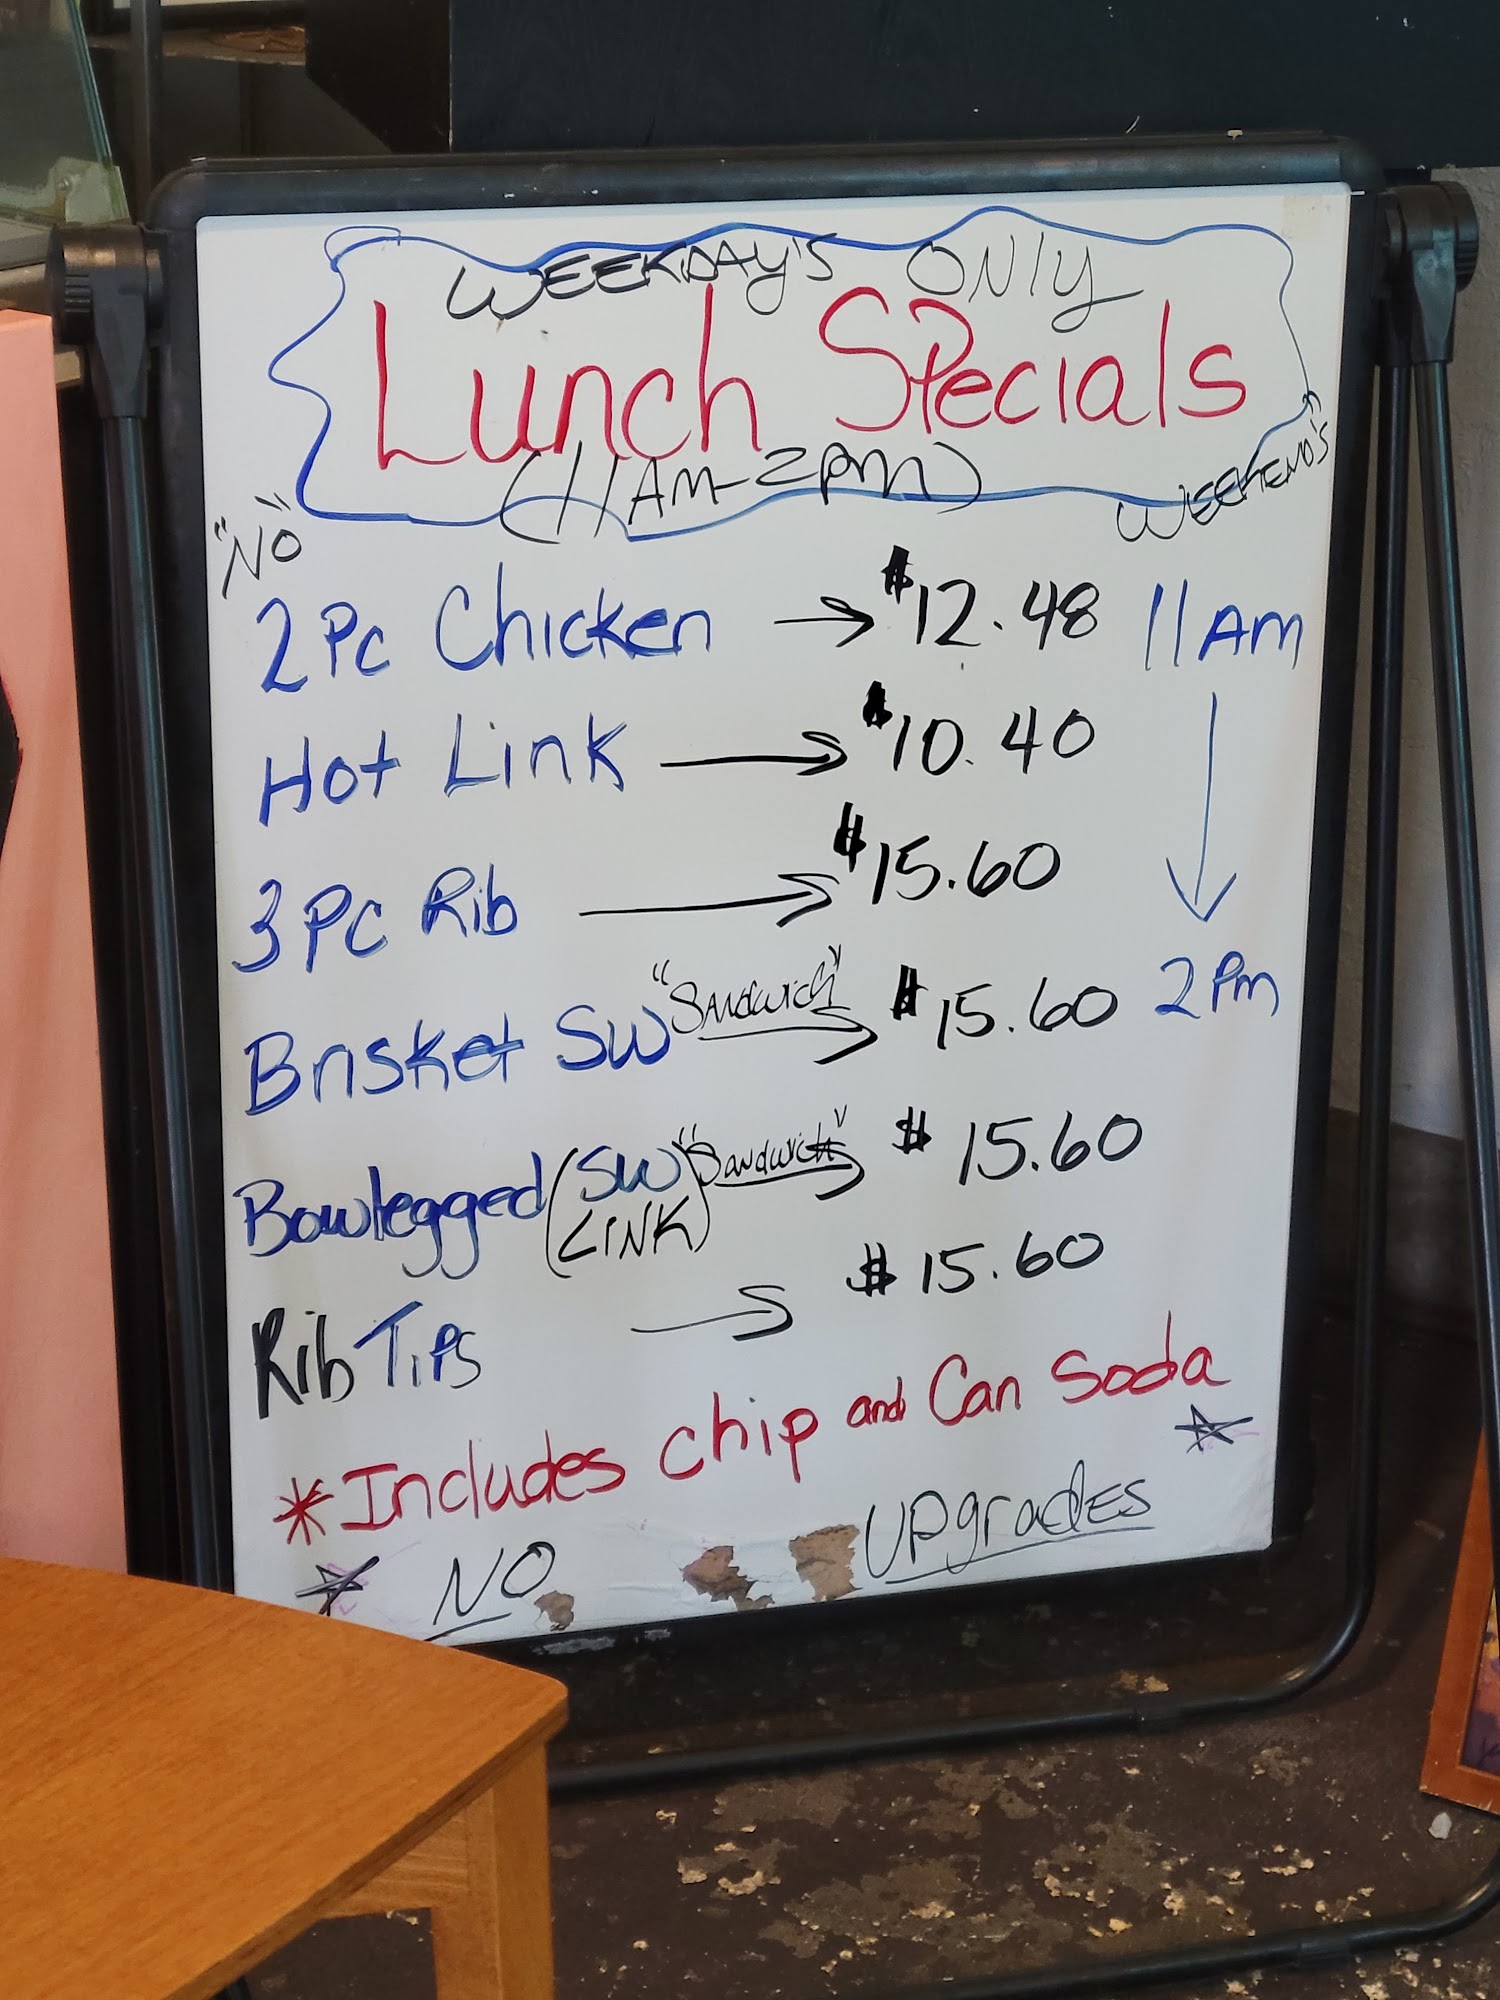 WEEKDAY'S ONLY
Lunch Specials
(11AM-2PM)
"NO" WEEKEND'S"
2 Pc Chicken → $12.48 11AM
Hot Link → $10.40 ↓
3 PC Rib → $15.60
Brisket SW "Sandwich" → $15.60 2 Pm
Bowlegged (SW "Sandwich" → $15.60
LINK)
Rib Tips → $15.60
*Includes chip and Can Soda
☆ NO UPgrades ☆